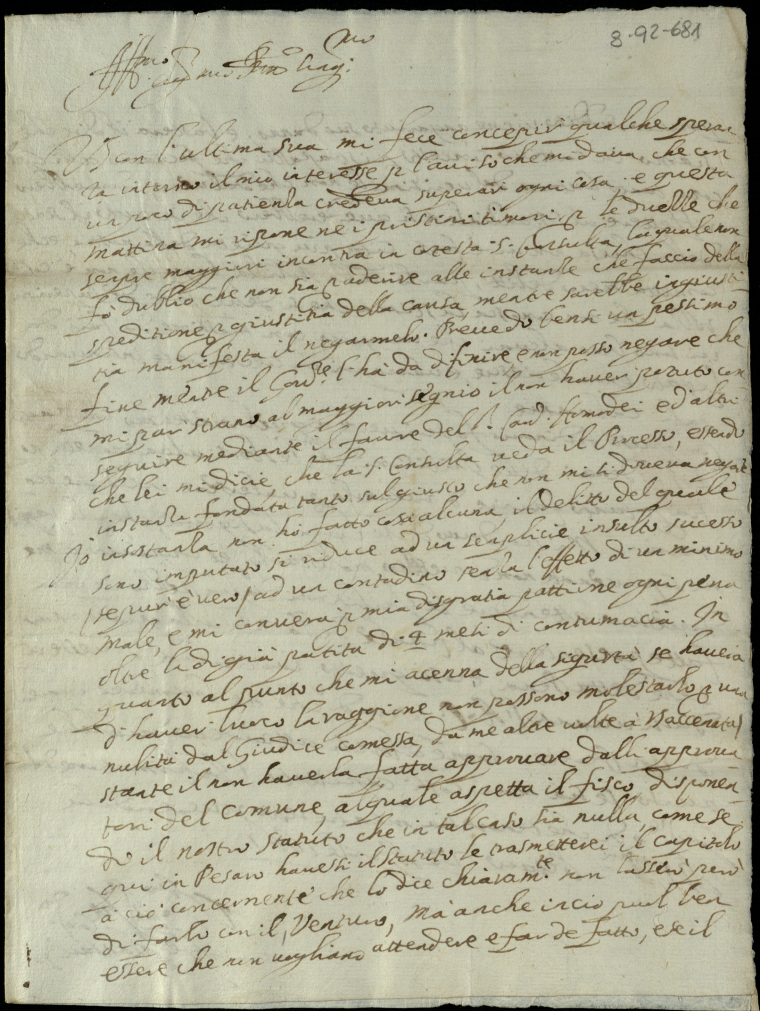 8-92-681
Ill.mo
Sig.r mio
VS con l'ultima sua mi fece concepir qualche speran
za intorno il mio interesse p l'aviso che mi dava, che con
un poco di patienza credeva superar ogni cosa, e questa
mattina mi ripone nei pristini timori, p le duelle che
sempre maggiori incontra in cotesta S. Consulta, la quale non
fò dubbio che non sia p aderire alle instanze che faccio della
speditione p giustitia della causa, mentre sarebbe ingiusti
tia manifesta il negarmela. Prevedo bensi un pessimo
fine mentre il Gov.re l'hà da difinire, e non posso negare che
mi par strano al maggior segnio il non haver potuto con
seguire mediante il favore del S. Card. Homodei e d'altri
che lei mi dicie, che la S. Consulta veda il Processo, essendo
instanza fondata tanto sul giusto che non mi si doveva negare
Io in sostanza non hò fatto cosa alcuna, il delitto del quale
sono imputato si riduce ad un semplicie insulto sucesso
(se pur è vero) ad un contadino senza l'effetto di un minimo
male, e mi converrà p mia disgratia patirne ogni pena
oltre la digià patita di 4 mesi di contumacia. In
quanto al punto che mi acenna della sigurtà se haverà
d'haver luoco la raggione non possono molestarlo p una
nulità dal Giudice comessa, da me altre volte a VS accenata,
stante il non haverla fatta approvare dalli approva
tori del Comune, al quale aspetta il fisco, disponen
do il nostro statuto che in tal caso sia nulla, come se
qui in Pesaro havessi il statuto le trasmetterei il capitolo
à ciò concernente che lo dice chiaram.te non lasserò però
di farlo con il Venturo, mà anche in ciò puol ben
essere che non vogliano attendere e far de fatto, e se il